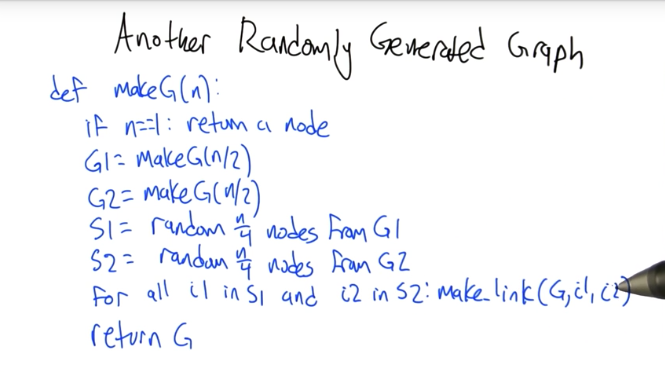 Another Randomly Generated Graph
def makeG(n):
if n==1: return a node
G1= makeG(n/2)
G2= makeG(n/2)
S1= random n/4 nodes from G1
S2= random n/4 nodes from G2
for all i1 in S1 and i2 in S2: make_link(G,i1,i2)
return G